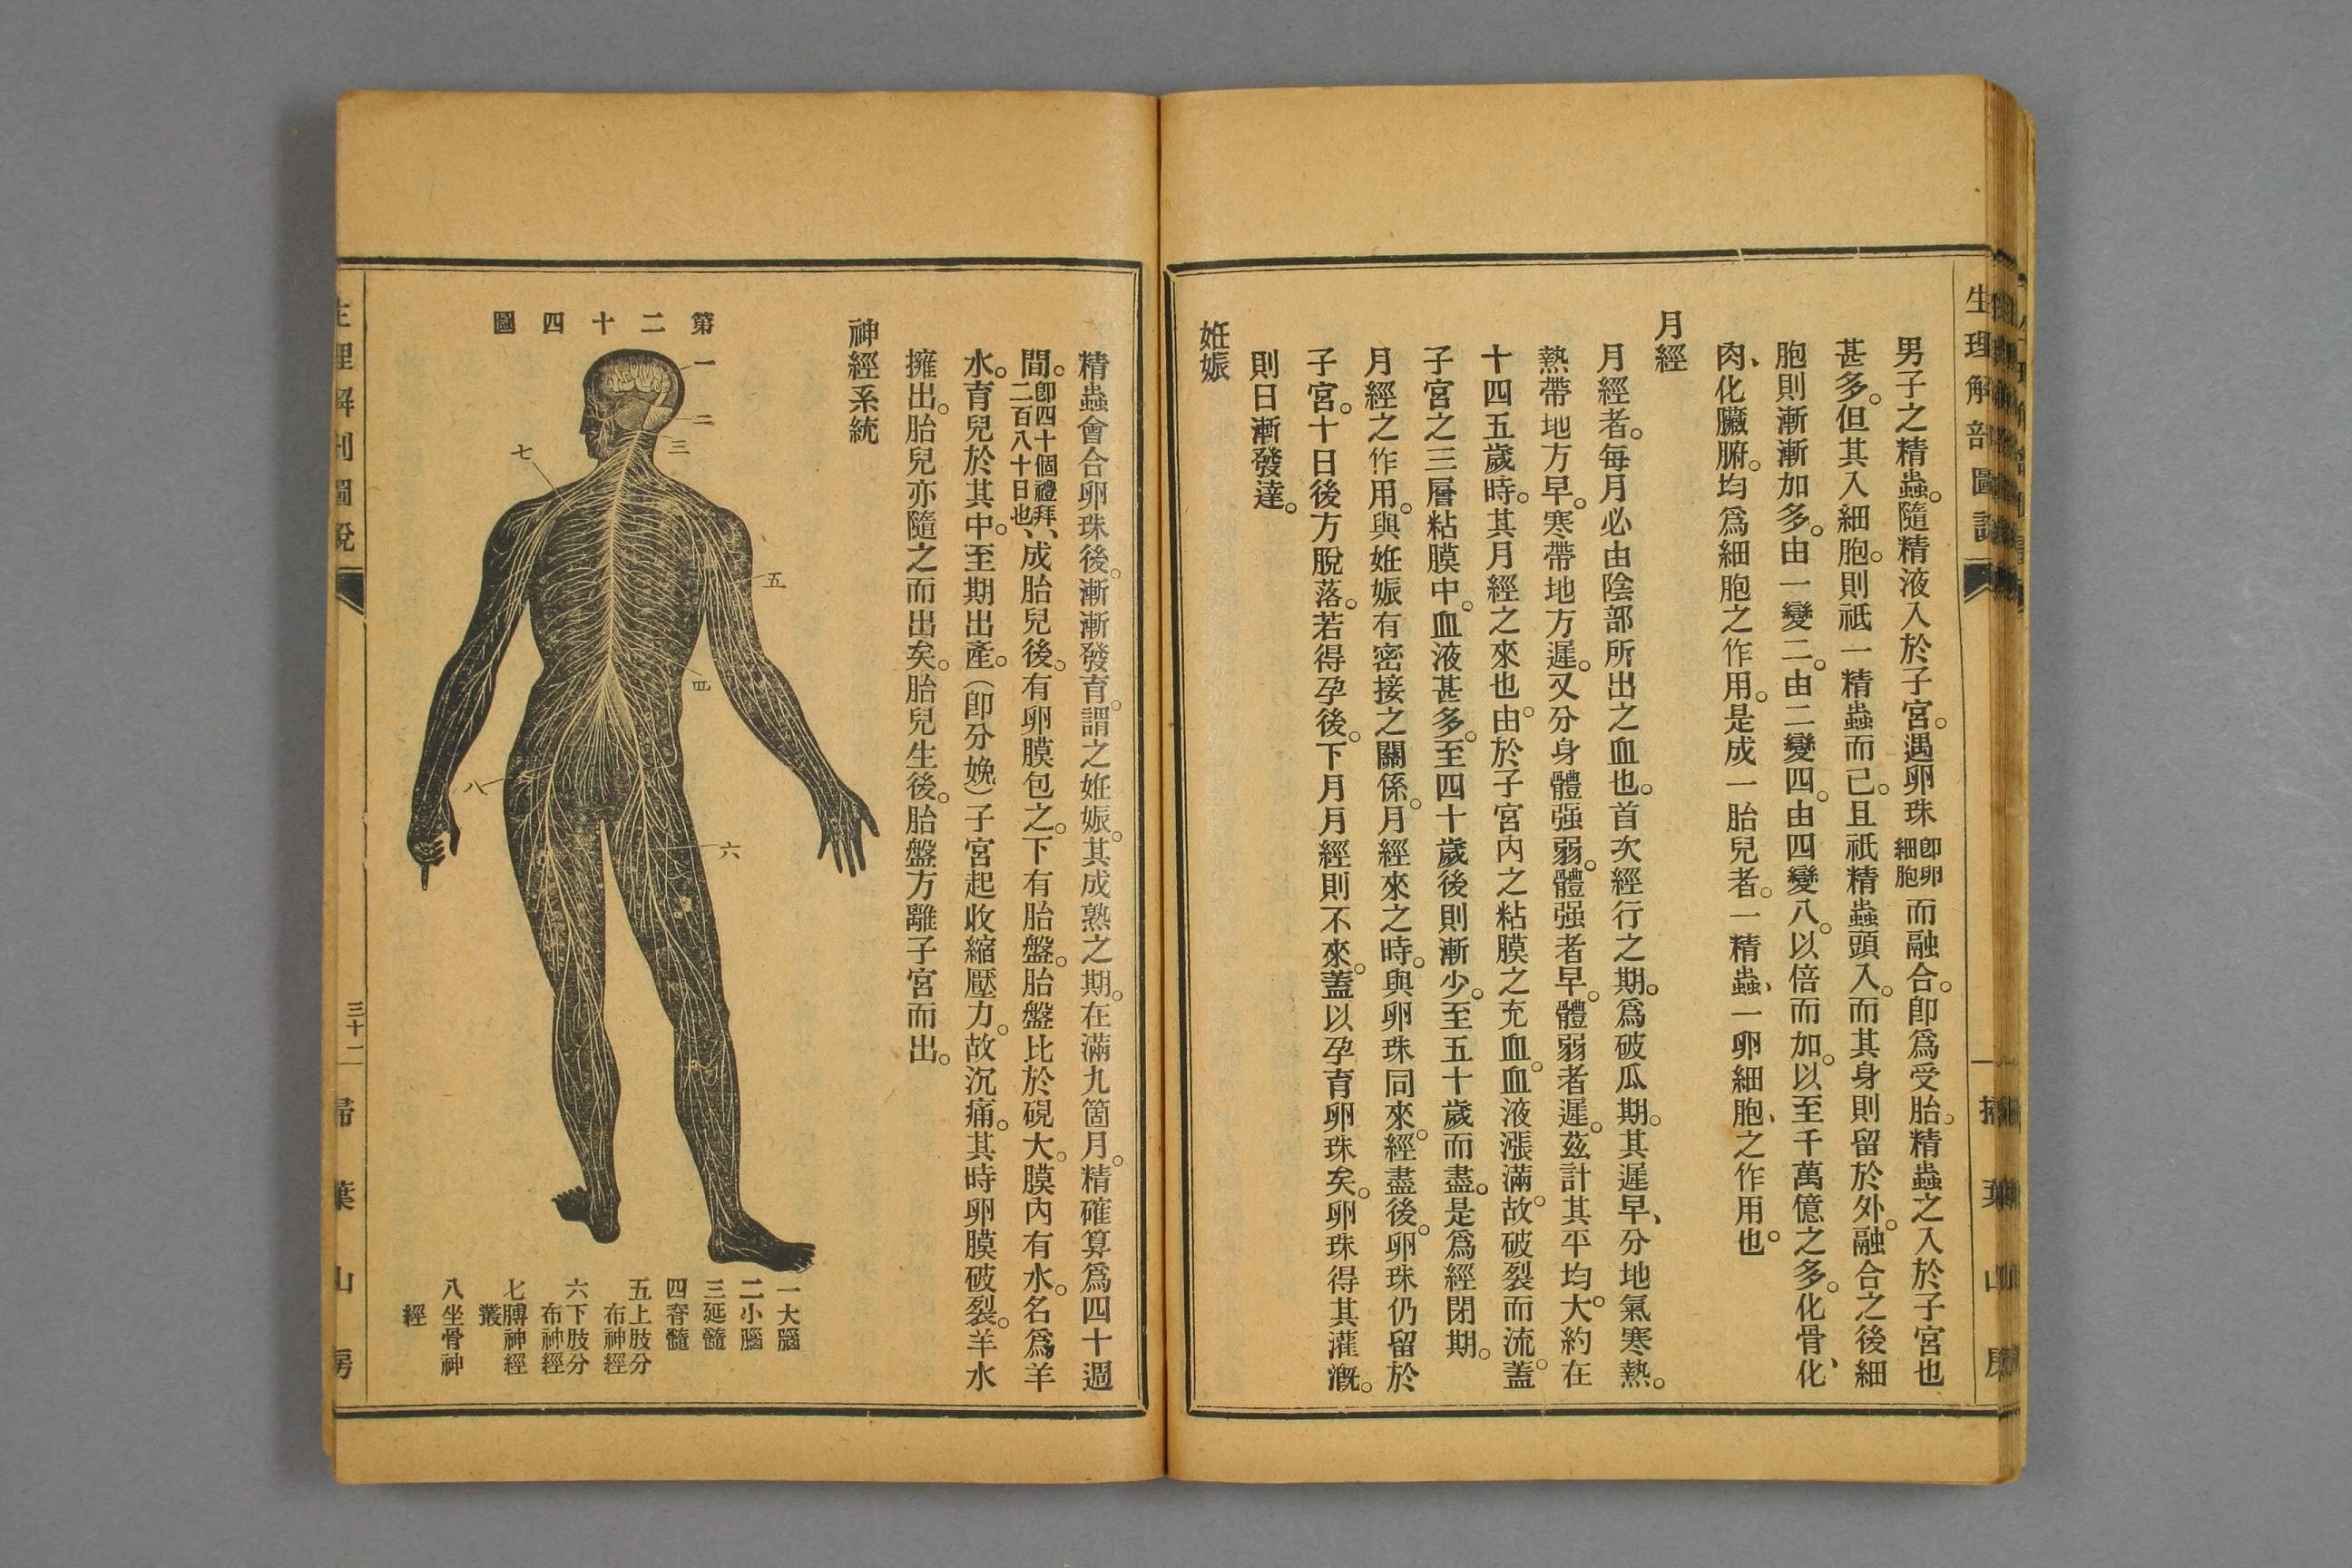 生理解剖圖說
掃葉山房
男子之精蟲。隨精液入於子宮。遇卵珠卽卵細胞而融合。卽爲受胎。精蟲之入於子宮也
甚多。但其入細胞。則祇一精蟲而已。且祇精蟲頭入。而其身則留於外。融合之後細
胞則漸漸加多。由一變二。由二變四。由四變八。以倍而加。以至千萬億之多。化骨、化
肉、化臟腑。均爲細胞之作用。是成一胎兒者。一精蟲、一卵細胞、之作用也。
月經
月經者。每月必由陰部所出之血也。首次經行之期。爲破瓜期。其遲早、分地氣寒熱。
熱帶地方早。寒帶地方遲。又分身體强弱。體强者早。體弱者遲。茲計其平均。大約在
十四五歲時。其月經之來也。由於子宮內之粘膜之充血。血液漲滿。故破裂而流。蓋
子宮之三層粘膜中。血液甚多。至四十歲後則漸少。至五十歲而盡。是爲經閉期。
月經之作用。與姙娠有密接之關係。月經來之時。與卵珠同來。經盡後。卵珠仍留於
子宮。十日後方脫落。若得孕後。下月月經則不來。蓋以孕育卵珠矣。卵珠得其灌漑。
則日漸發達。
姙娠
精蟲會合卵珠後。漸漸發育。謂之姙娠。其成熟之期。在滿九箇月。精確算爲四十週
間。卽四十個禮拜、二百八十日也、成胎兒後。有卵膜包之。下有胎盤。胎盤比於硯大。膜內有水。名爲羊
水。育兒於其中。至期出產。（卽分娩）子宮起收縮壓力。故沉痛。其時卵膜破裂。羊水
擁出。胎兒亦隨之而出矣。胎兒生後。胎盤方離子宮而出。
神經系統
第二十四圖
一
二
三
四
五
六
七
八
一大腦
二小腦
三延髓
四脊髓
五上肢分
布神經
六下肢分
布神經
七膊神經
叢
八坐骨神
經
生理解剖圖說
三十二
掃葉山房